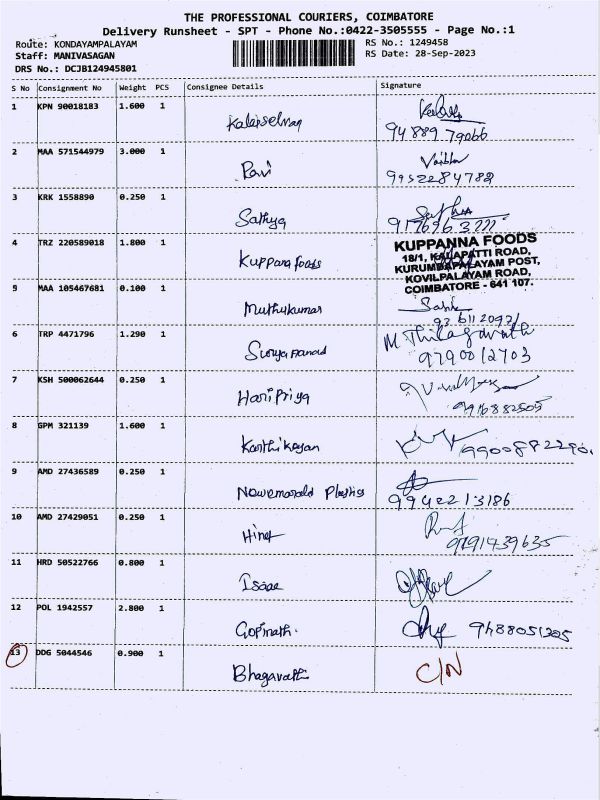 THE PROFESSIONAL COURIERS, COIMBATORE
Delivery Runsheet - SPT - Phone No.:0422-3505555 - Page No.:1
Route: KONDAYAMPALAYAM
RS No.: 1249458
Staff: MANIVASAGAN
RS Date: 28-Sep-2023
DRS No.: DCJB124945801
S No Consignment No Weight PCS Consignee Details Signature
1 KPN 90018183 1.600 1 Kalaiselvan
94889 79066
2 MAA 571544979 3.000 1 Ravi Vaibhav
9952284782
3 KRK 1558890 0.250 1 Sathya
4 TRZ 220589018 1.800 1 Kuppana foods
KUPPANNA FOODS
18/1, KALAPATTI ROAD,
KURUMBAPALAYAM POST,
KOVILPALAYAM ROAD,
COIMBATORE - 641 107.
5 MAA 105467681 0.100 1 Muthukumar
6 TRP 4471796 1.290 1 M Thilagavathi
9790012703
7 KSH 500062644 0.250 1 Hari Priya
9916882505
8 GPM 321139 1.600 1 Karthikeyan
9900882290.
9 AMD 27436589 0.250 1 Newemarald Plastics
9942213186
10 AMD 27429051 0.250 1
9191439635
11 HRD 50522766 0.800 1 Isaac
12 POL 1942557 2.800 1 Gopinath.
13 DDG 5044546 0.900 1 Bhagavathi C/N